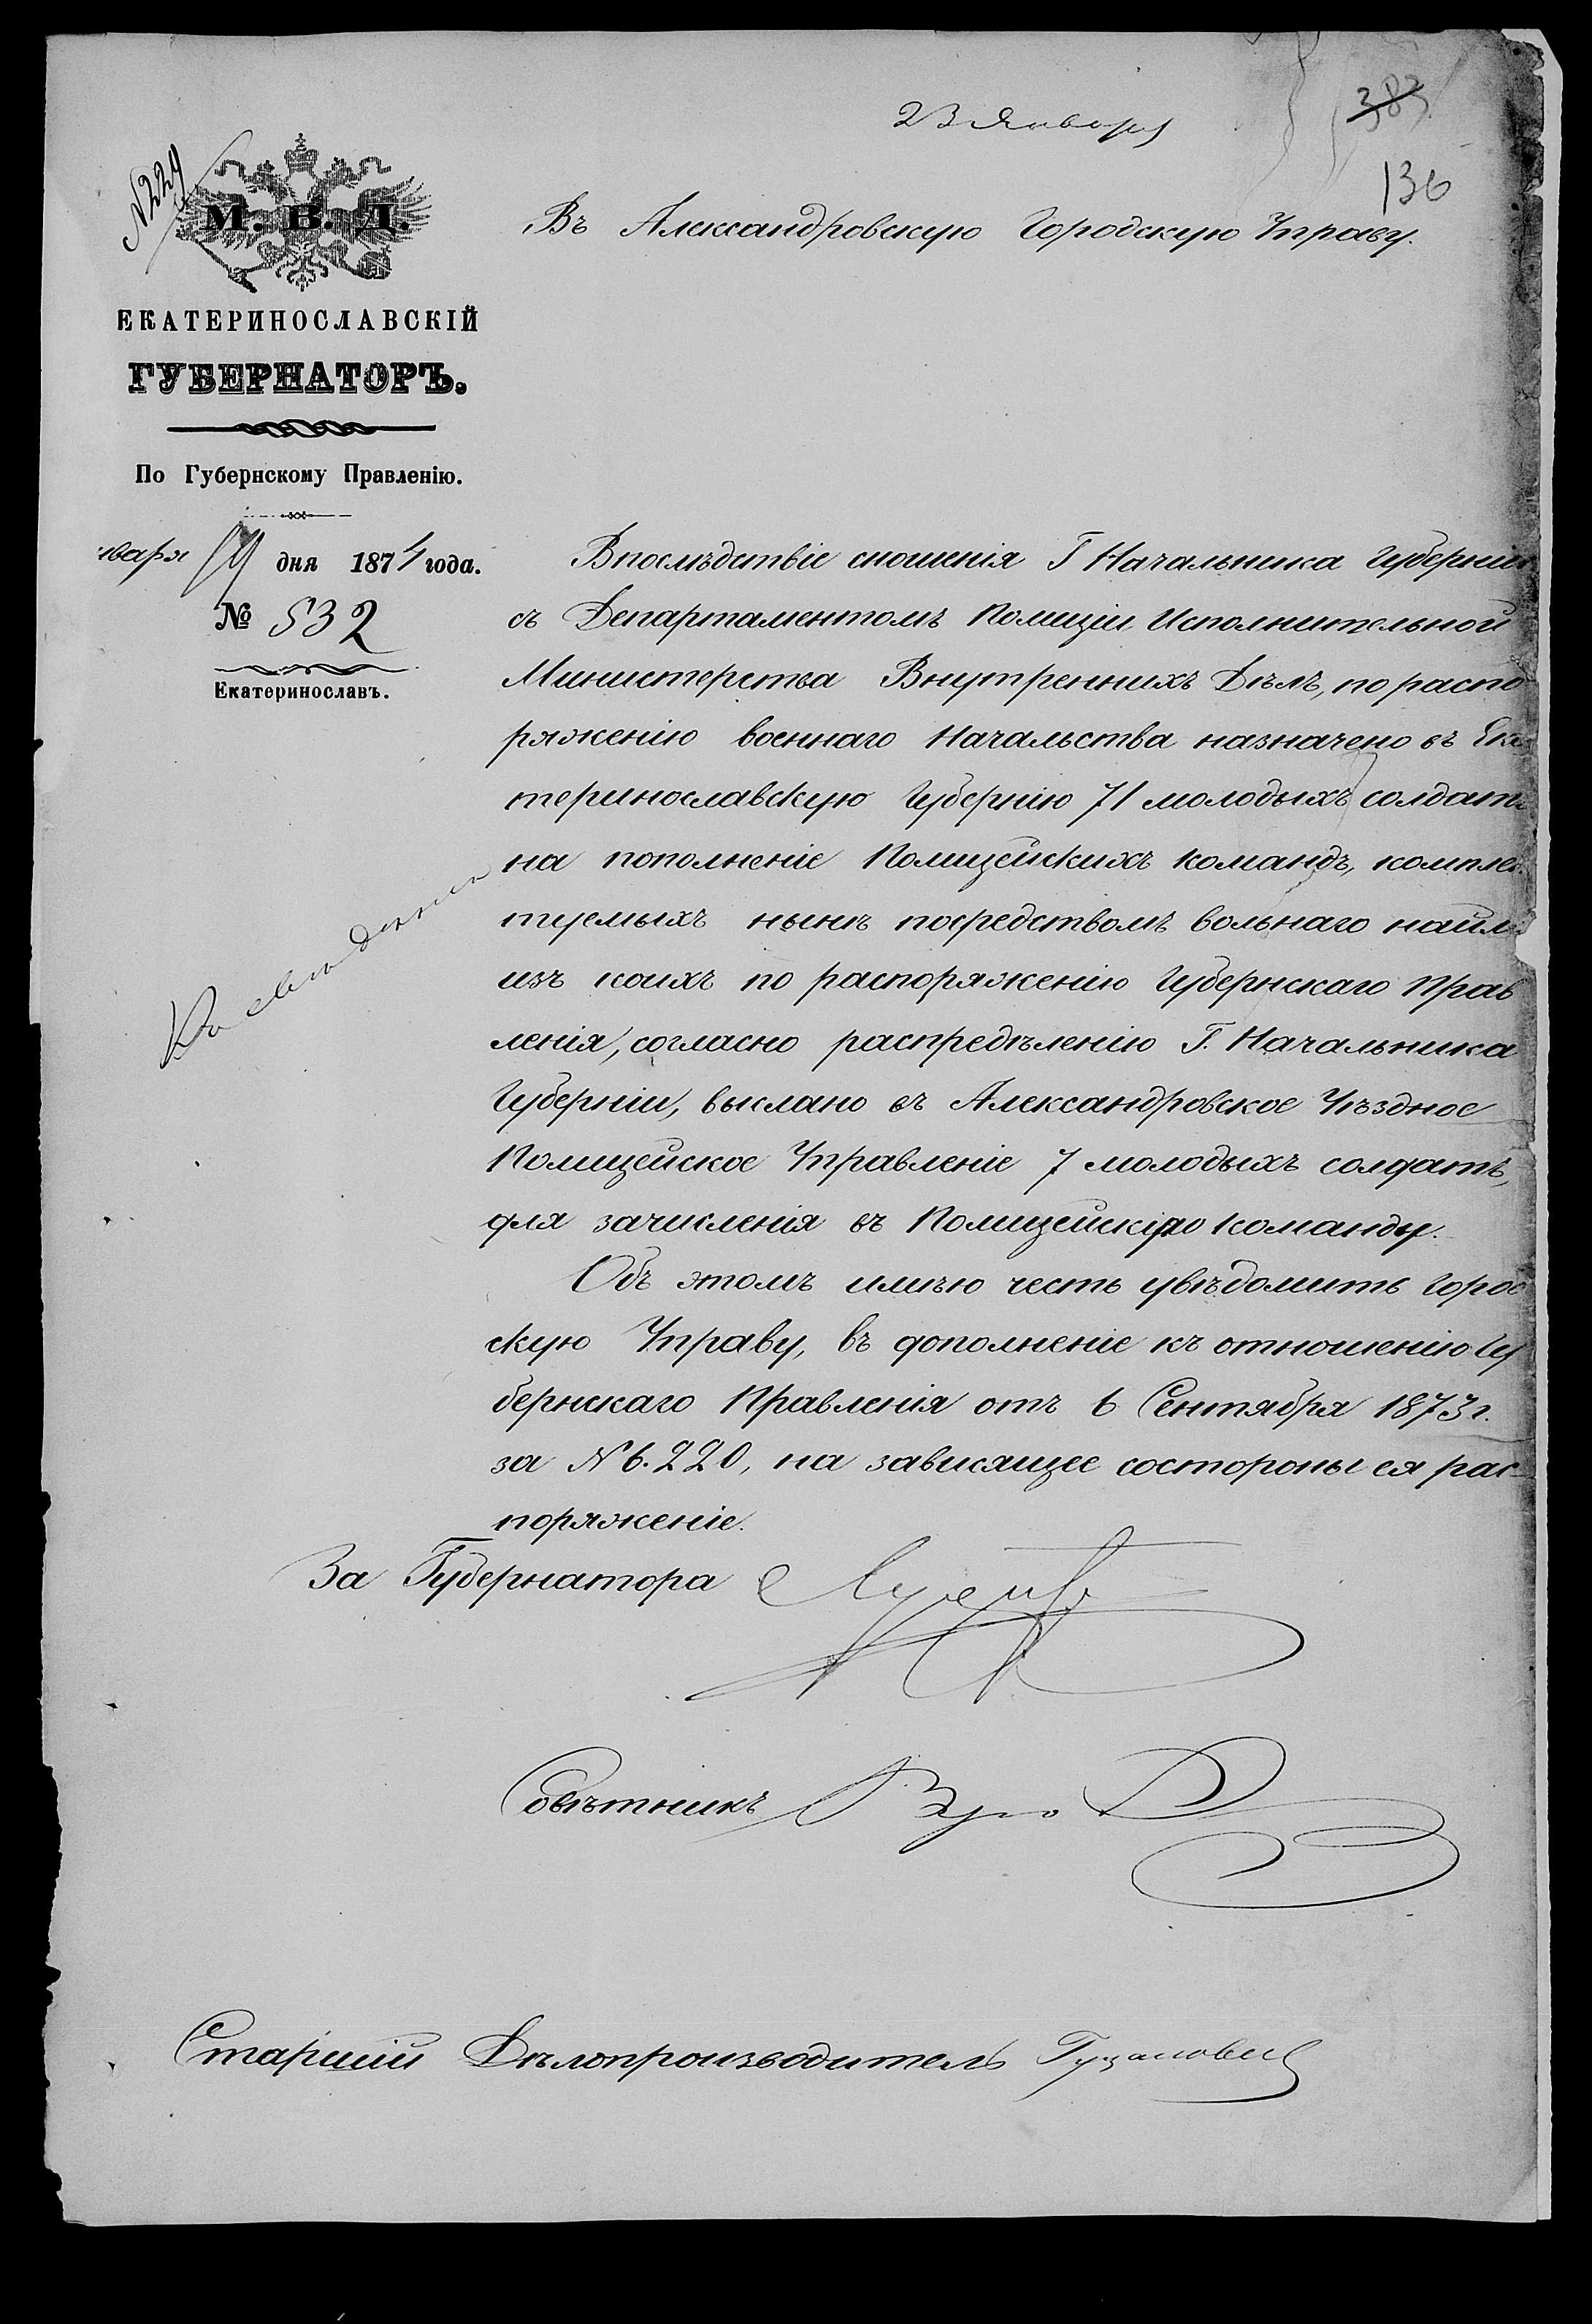 23 Января
383
136
№ 229
М. В. Д.
ЕКАТЕРИНОСЛАВСКІЙ
ГУБЕРНАТОРЪ.
По Губернскому Правленію.
нваря 19 дня 1874 года.
№ 532
Екатеринославъ.
Въ Александровскую Городскую Управу.
Впослѣдствіе сношенія Г Начальника Губерніи
съ Департаментомъ Полиціи Исполнительной
Министерства Внутреннихъ Дѣлъ, по распо
ряженію военнаго Начальства назначено въ Ека
теринославскую Губернію 71 молодыхъ солдатъ
на пополненіе Полицейскихъ командъ, комплек
туемыхъ нынѣ посредствомъ вольнаго найма
изъ коихъ по распоряженію Губернскаго Прав
ленія, согласно распредѣленію Г. Начальника
Губерніи, выслано въ Александровское Уѣздное
Полицейское Управленіе 7 молодыхъ солдатъ,
для зачисленія въ Полицейскую команду.
Къ свѣдѣнію
Объ этомъ имѣю честь увѣдомить Город
скую Управу, въ дополненіе къ отношенію Гу
бернскаго Правленія отъ 6 Сентября 1873 г.
за № 6.220, на зависящее состороны ея рас-
поряженіе.
За Губернатора
Совѣтникъ
Старшій Дѣлопроизводитель